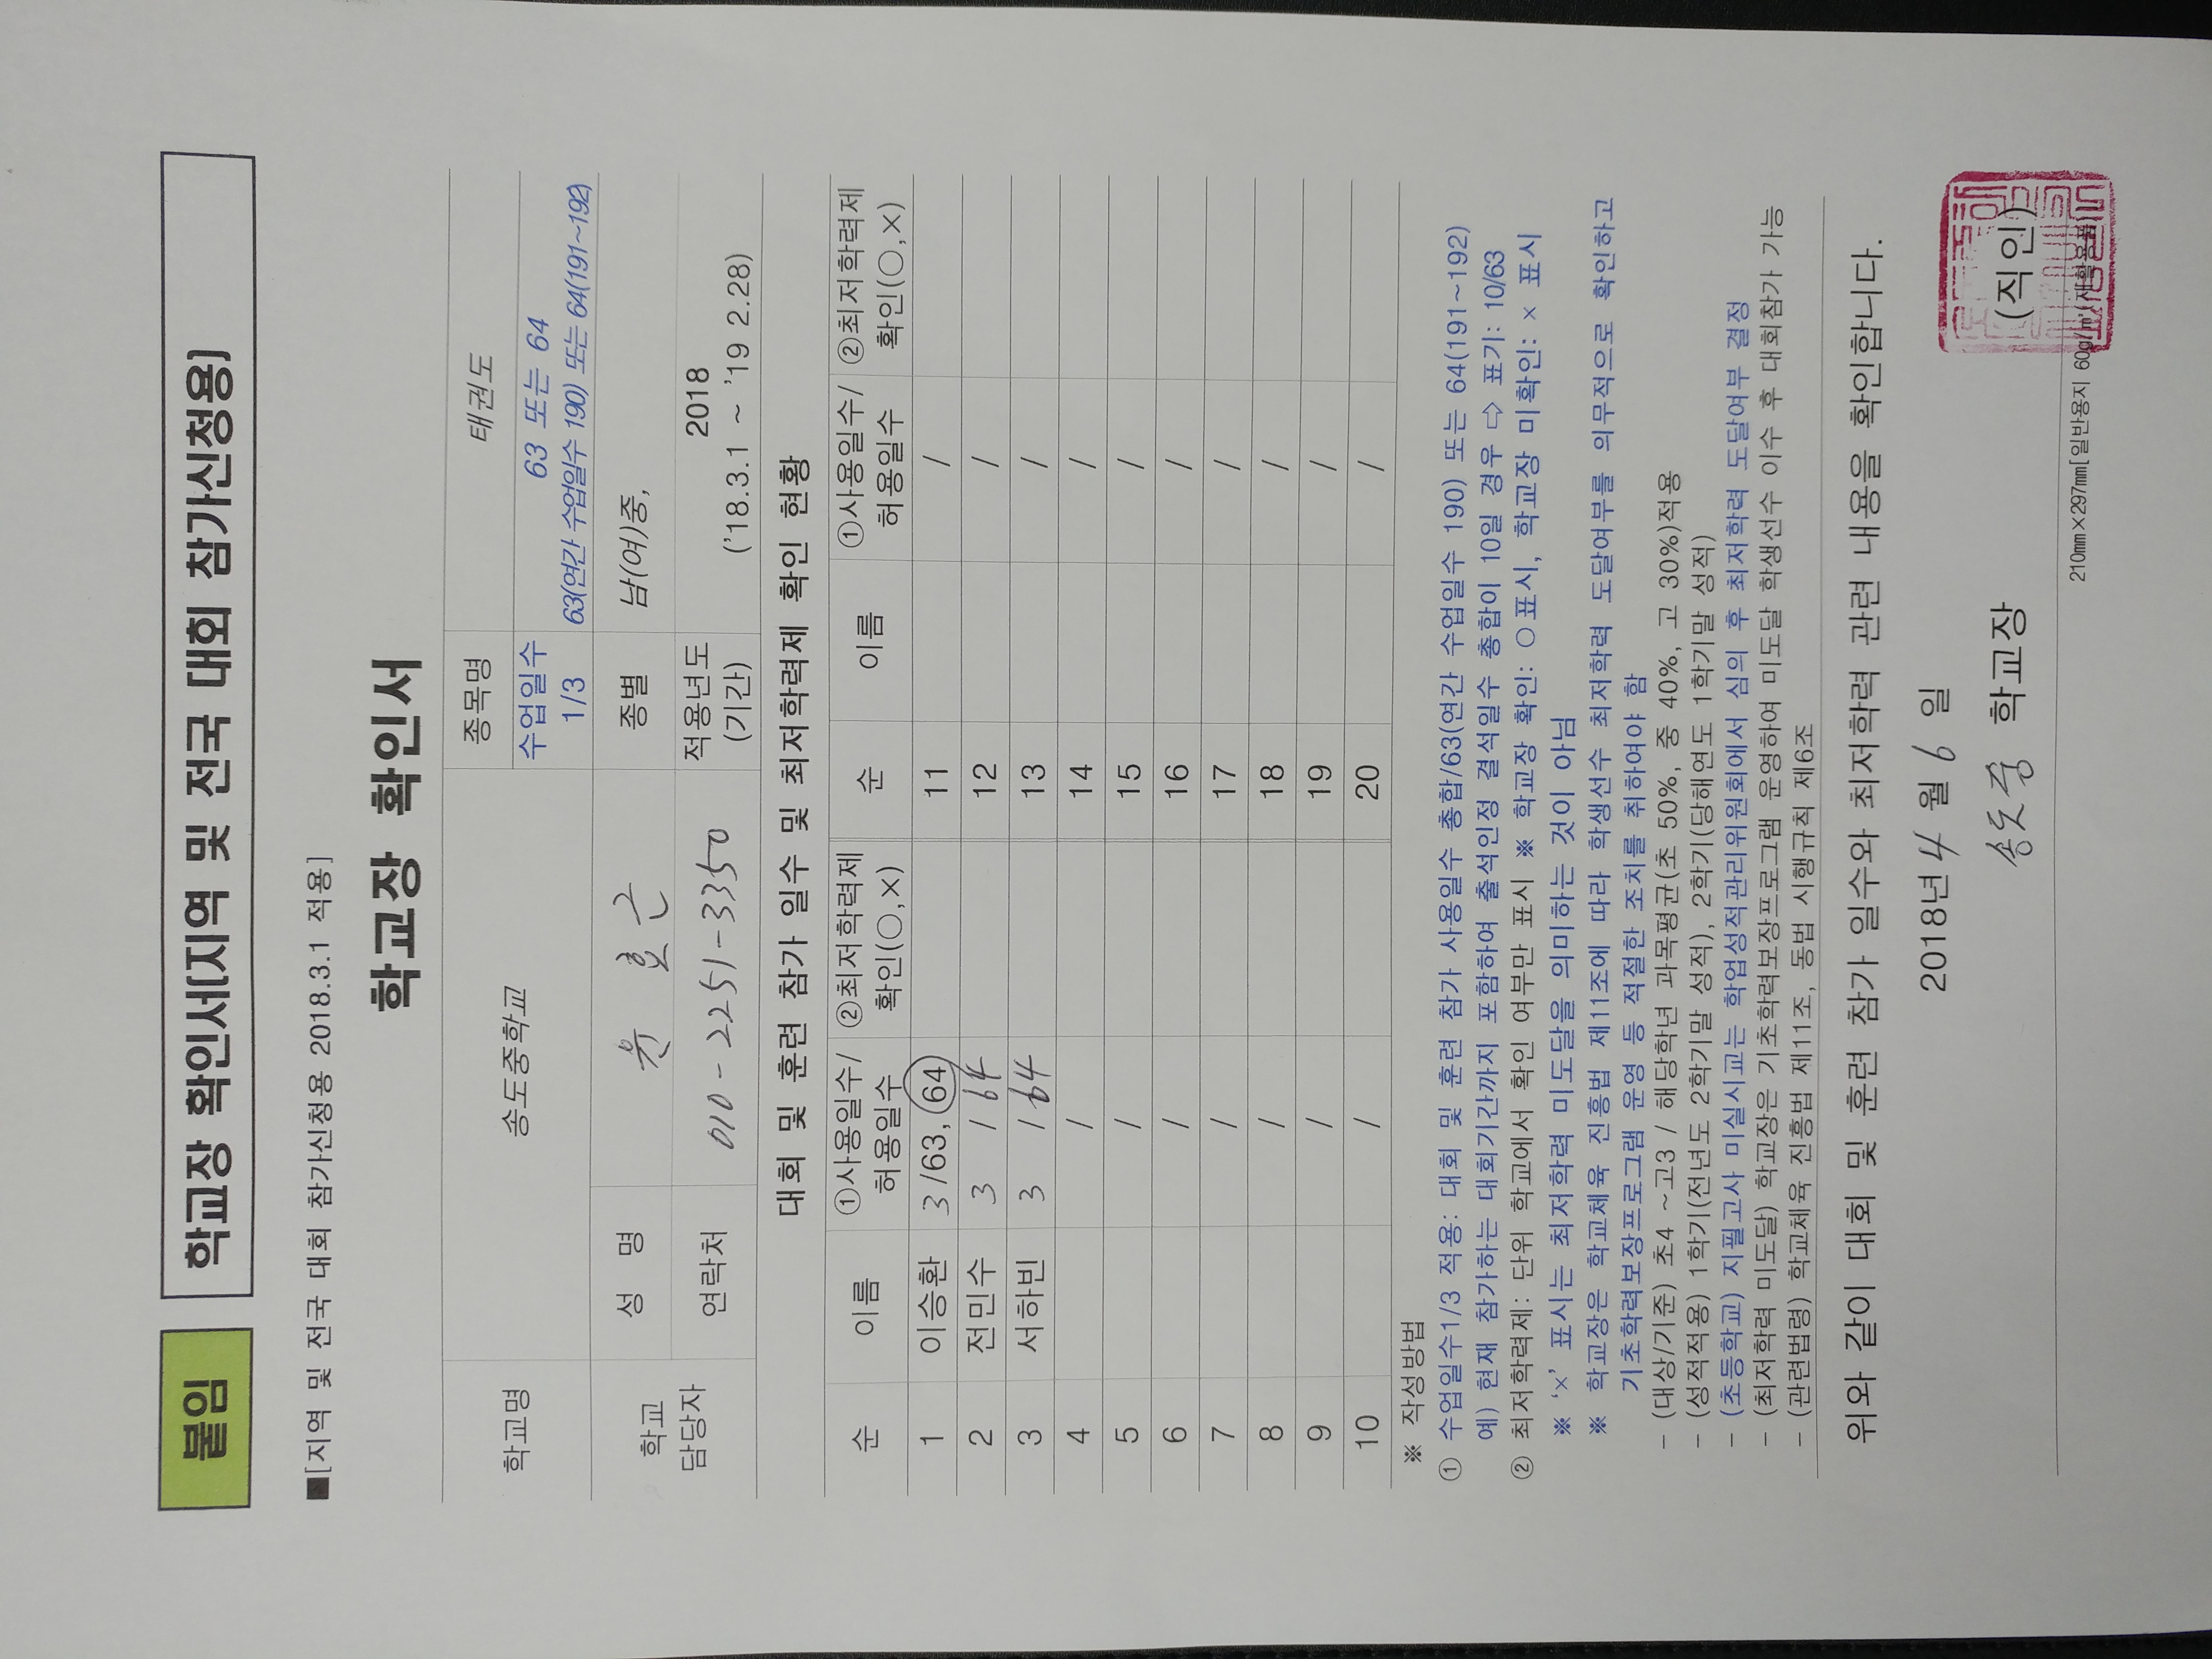 붙임
학교장 확인서[지역 및 전국 대회 참가신청용]
■[지역 및 전국 대회 참가신청용 2018.3.1 적용]
학교장 확인서
학교명 송도중학교 종목명 태권도
수업일수 1/3 63 또는 64
63(연간 수업일수 190) 또는 64(191~192)
학교 담당자 성 명 윤 호 근 종별 남(여)중,
연락처 010-2251-3350 적용년도 (기간) 2018
('18.3.1 ~ '19 2.28)
대회 및 훈련 참가 일수 및 최저학력제 확인 현황
순 이름 ①사용일수/허용일수 ②최저학력제 확인(○,×) 순 이름 ①사용일수/허용일수 ②최저학력제 확인(○,×)
1 이승환 3/63, 64 11 /
2 전민수 3 / 64 12 /
3 서하빈 3 / 64 13 /
4 / 14 /
5 / 15 /
6 / 16 /
7 / 17 /
8 / 18 /
9 / 19 /
10 / 20 /
※ 작성방법
① 수업일수1/3 적용: 대회 및 훈련 참가 사용일수 총합/63(연간 수업일수 190) 또는 64(191~192)
예) 현재 참가하는 대회기간까지 포함하여 출석인정 결석일수 총합이 10일 경우 ⇨ 표기: 10/63
② 최저학력제: 단위 학교에서 확인 여부만 표시 ※ 학교장 확인: ○표시, 학교장 미확인: × 표시
※ '×' 표시는 최저학력 미도달을 의미하는 것이 아님
※ 학교장은 학교체육 진흥법 제11조에 따라 학생선수 최저학력 도달여부를 의무적으로 확인하고
기초학력보장프로그램 운영 등 적절한 조치를 취하여야 함
- (대상/기준) 초4 ~고3 / 해당학년 과목평균(초 50%, 중 40%, 고 30%)적용
- (성적적용) 1학기(전년도 2학기말 성적), 2학기(당해연도 1학기말 성적)
- (초등학교) 지필고사 미실시교는 학업성적관리위원회에서 심의 후 최저학력 도달여부 결정
- (최저학력 미도달) 학교장은 기초학력보장프로그램 운영하여 미도달 학생선수 이수 후 대회참가 가능
- (관련법령) 학교체육 진흥법 제11조, 동법 시행규칙 제6조
위와 같이 대회 및 훈련 참가 일수와 최저학력 관련 내용을 확인합니다.
2018년 4 월 6 일
송도중 학교장 (직인)
210㎜×297㎜[일반용지 60g/㎡(재활용품)]